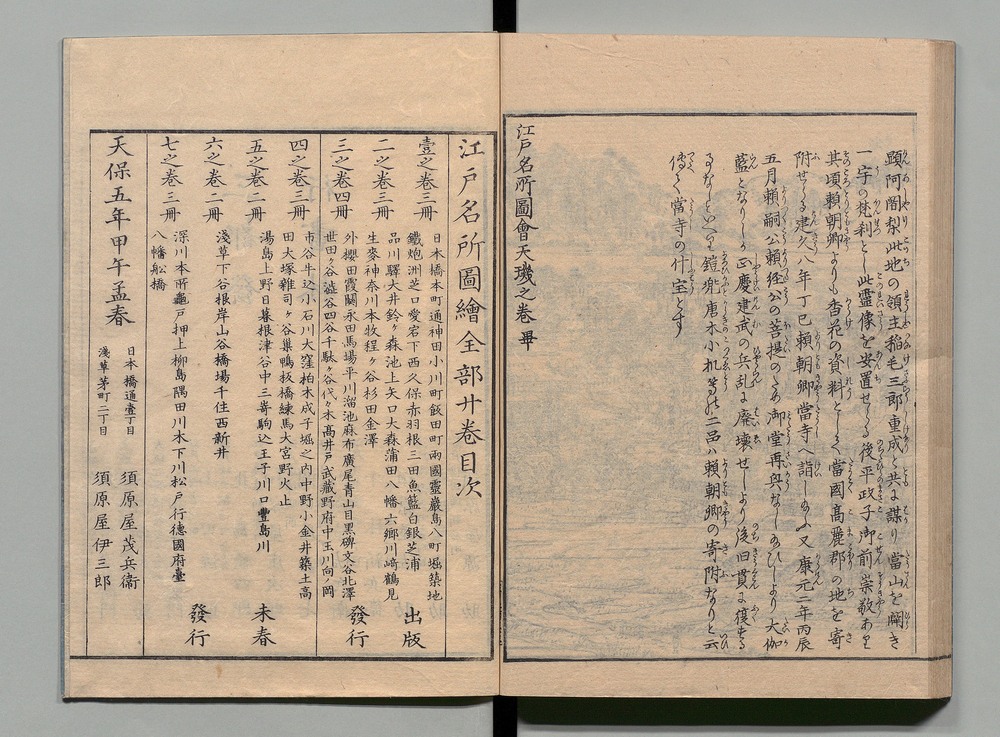 顕阿闍梨此地の領主稲毛三郎重成と共に謀り當山を闢き
一宇の梵刹とし此靈像を安置せる後平政子御前崇敬あり
其頃頼朝卿よりも香花の資料として當國高麗郡の地を寄
附せらる建久八年丁巳頼朝卿當寺へ詣し給ふ又康元二年丙辰
五月頼嗣公頼経公の菩提のため御堂再興なし給ひしより大伽
藍となりしか正慶建武の兵乱に廃壊せしより後旧貫に復する
事なしといへり鎧兜唐木小机等の二品ハ頼朝卿の寄附なりと云
傳へて當寺の什宝とす
江戸名所圖會天璣之巻 畢
江戸名所圖繪全部廿卷目次
壹之卷三冊 日本橋本町通神田小川町飯田町兩國靈巖島八町堀築地
鐵炮洲芝口愛宕下西久保赤羽根三田魚籃白銀芝浦
二之卷三冊 品川驛大井鈴ヶ森池上矢口大森蒲田八幡六郷川﨑鶴見
生麥神奈川本牧程ヶ谷杉田金澤
三之卷四冊 外櫻田霞關永田馬場平川溜池麻布廣尾青山目黒碑文谷北澤
世田ヶ谷澁谷四谷千駄ヶ谷代々木高井戸武藏野府中玉川向ノ岡
出版
發行
四之卷三冊 市谷牛込小石川大窪柏木成子堀之内中野小金井築土高
田大塚雜司ヶ谷巣鴨板橋練馬大宮野火止
五之卷二冊 湯島上野日暮根津谷中三﨑駒込王子川口豐島川
六之卷二冊 淺草下谷根岸山谷橋場千住西新井
七之卷三冊 深川本所龜戸押上柳島隅田川木下川松戸行德國府臺
八幡舩橋
未春
發行
天保五年甲午孟春
日本橋通壹丁目 須原屋茂兵衞
淺草茅町二丁目 須原屋伊三郎